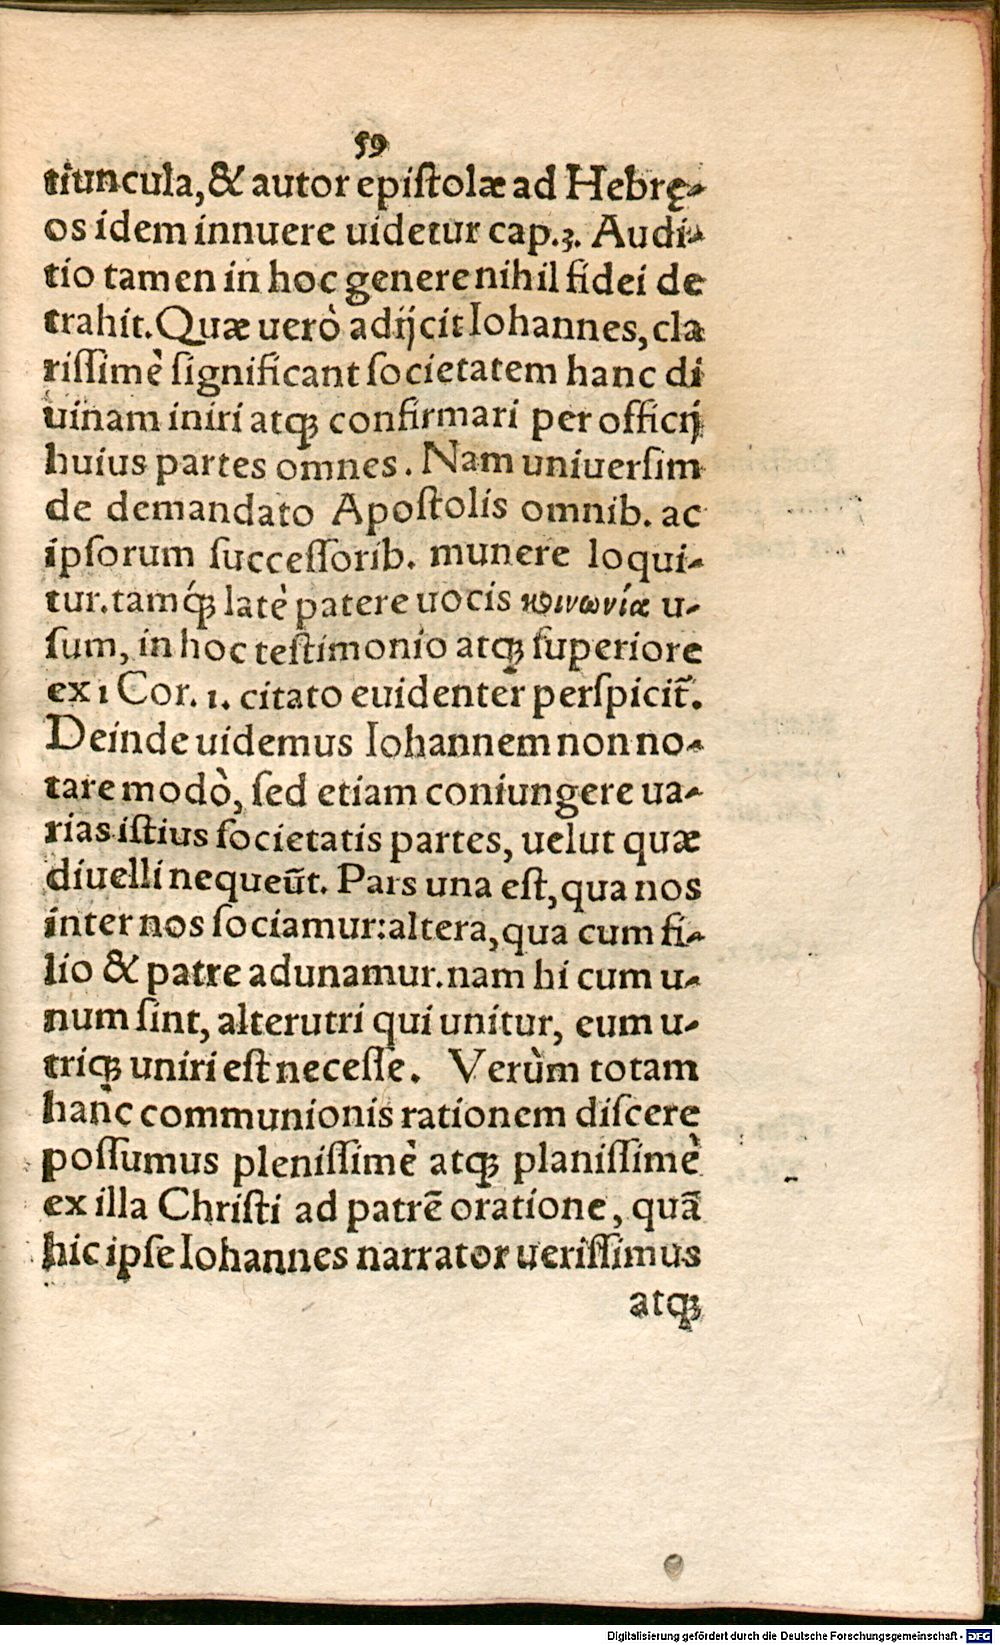 59
tiuncula, & autor epiſtolæ ad Hebrę-
os idem innuere uidetur cap.3. Audi-
tio tamen in hoc genere nihil fidei de
trahit. Quæ uerò adijcit Iohannes, cla
riſſimè ſignificant ſocietatem hanc di
uinam iniri atq; confirmari per officij
huius partes omnes. Nam uniuerſim
de demandato Apoſtolis omnib. ac
ipſorum ſucceſſorib. munere loqui-
tur. tamq́; latè patere uocis κοινωνίας u-
ſum, in hoc teſtimonio atq; ſuperiore
ex 1 Cor. 1. citato euidenter perſpicit̃.
Deinde uidemus Iohannem non no-
tare modò, ſed etiam coniungere ua-
rias iſtius ſocietatis partes, uelut quæ
diuelli nequeũt. Pars una eſt, qua nos
inter nos ſociamur: altera, qua cum fi-
lio & patre adunamur. nam hi cum u-
num ſint, alterutri qui unitur, eum u-
triq; uniri eſt neceſſe. Verùm totam
hanc communionis rationem diſcere
poſſumus pleniſſimè atq; planiſſimè
ex illa Chriſti ad patrẽ oratione, quã
hic ipſe Iohannes narrator ueriſſimus
atq;
Digitalisierung gefördert durch die Deutsche Forschungsgemeinschaft - DFG